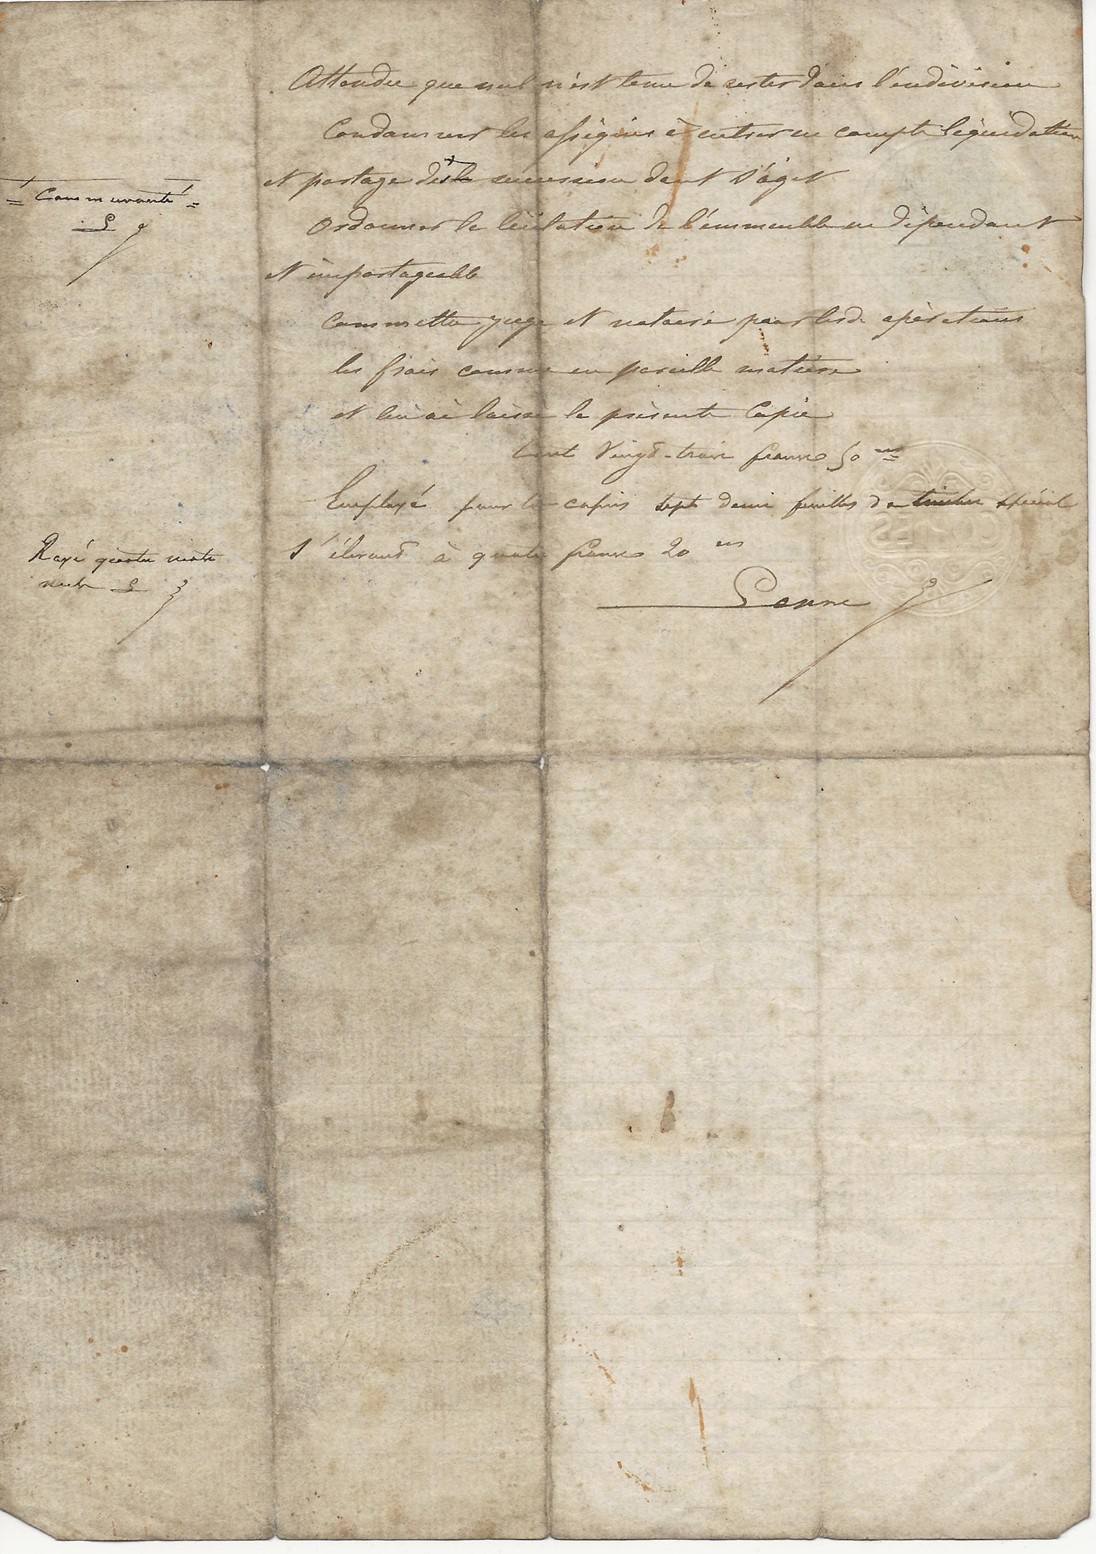 Attendu que nul n'est tenu de rester dans l'indivision
Condamner les assignés à entrer en compte liquidation
et partage des succession dont s'agit
= Communauté =
Ordonner la licitation de l'immeuble en dépendant
et impartageable
Commettre juge et notaire pour lesd. opérations
les frais comme en pareille matière
et lui ai laissé la présente Copie
Cout Vingt-trois francs 50 ces
Employé pour les copies sept demi feuilles de timbre spécial
S'élevant à quatre francs 20 ces
Rayé quatre mots
nuls